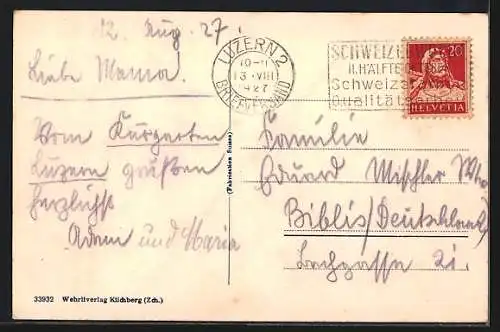 12. Aug. 27.
Liebe Mama.
Vom Kurgarten
Luzern grüßen
herzlichst
Adam und Maria
LUZERN 2
10-11
13. VIII
1927
BRIEFVERSAND
SCHWEIZER
II. HÄLFTE
Schweizer
Qualitäts
20
HELVETIA
(Fabrication Suisse)
Familie
Eduard Mischler
Biblis/Deutschland
Bachgasse 21.
33932 Wehrliverlag Kilchberg (Zch.)